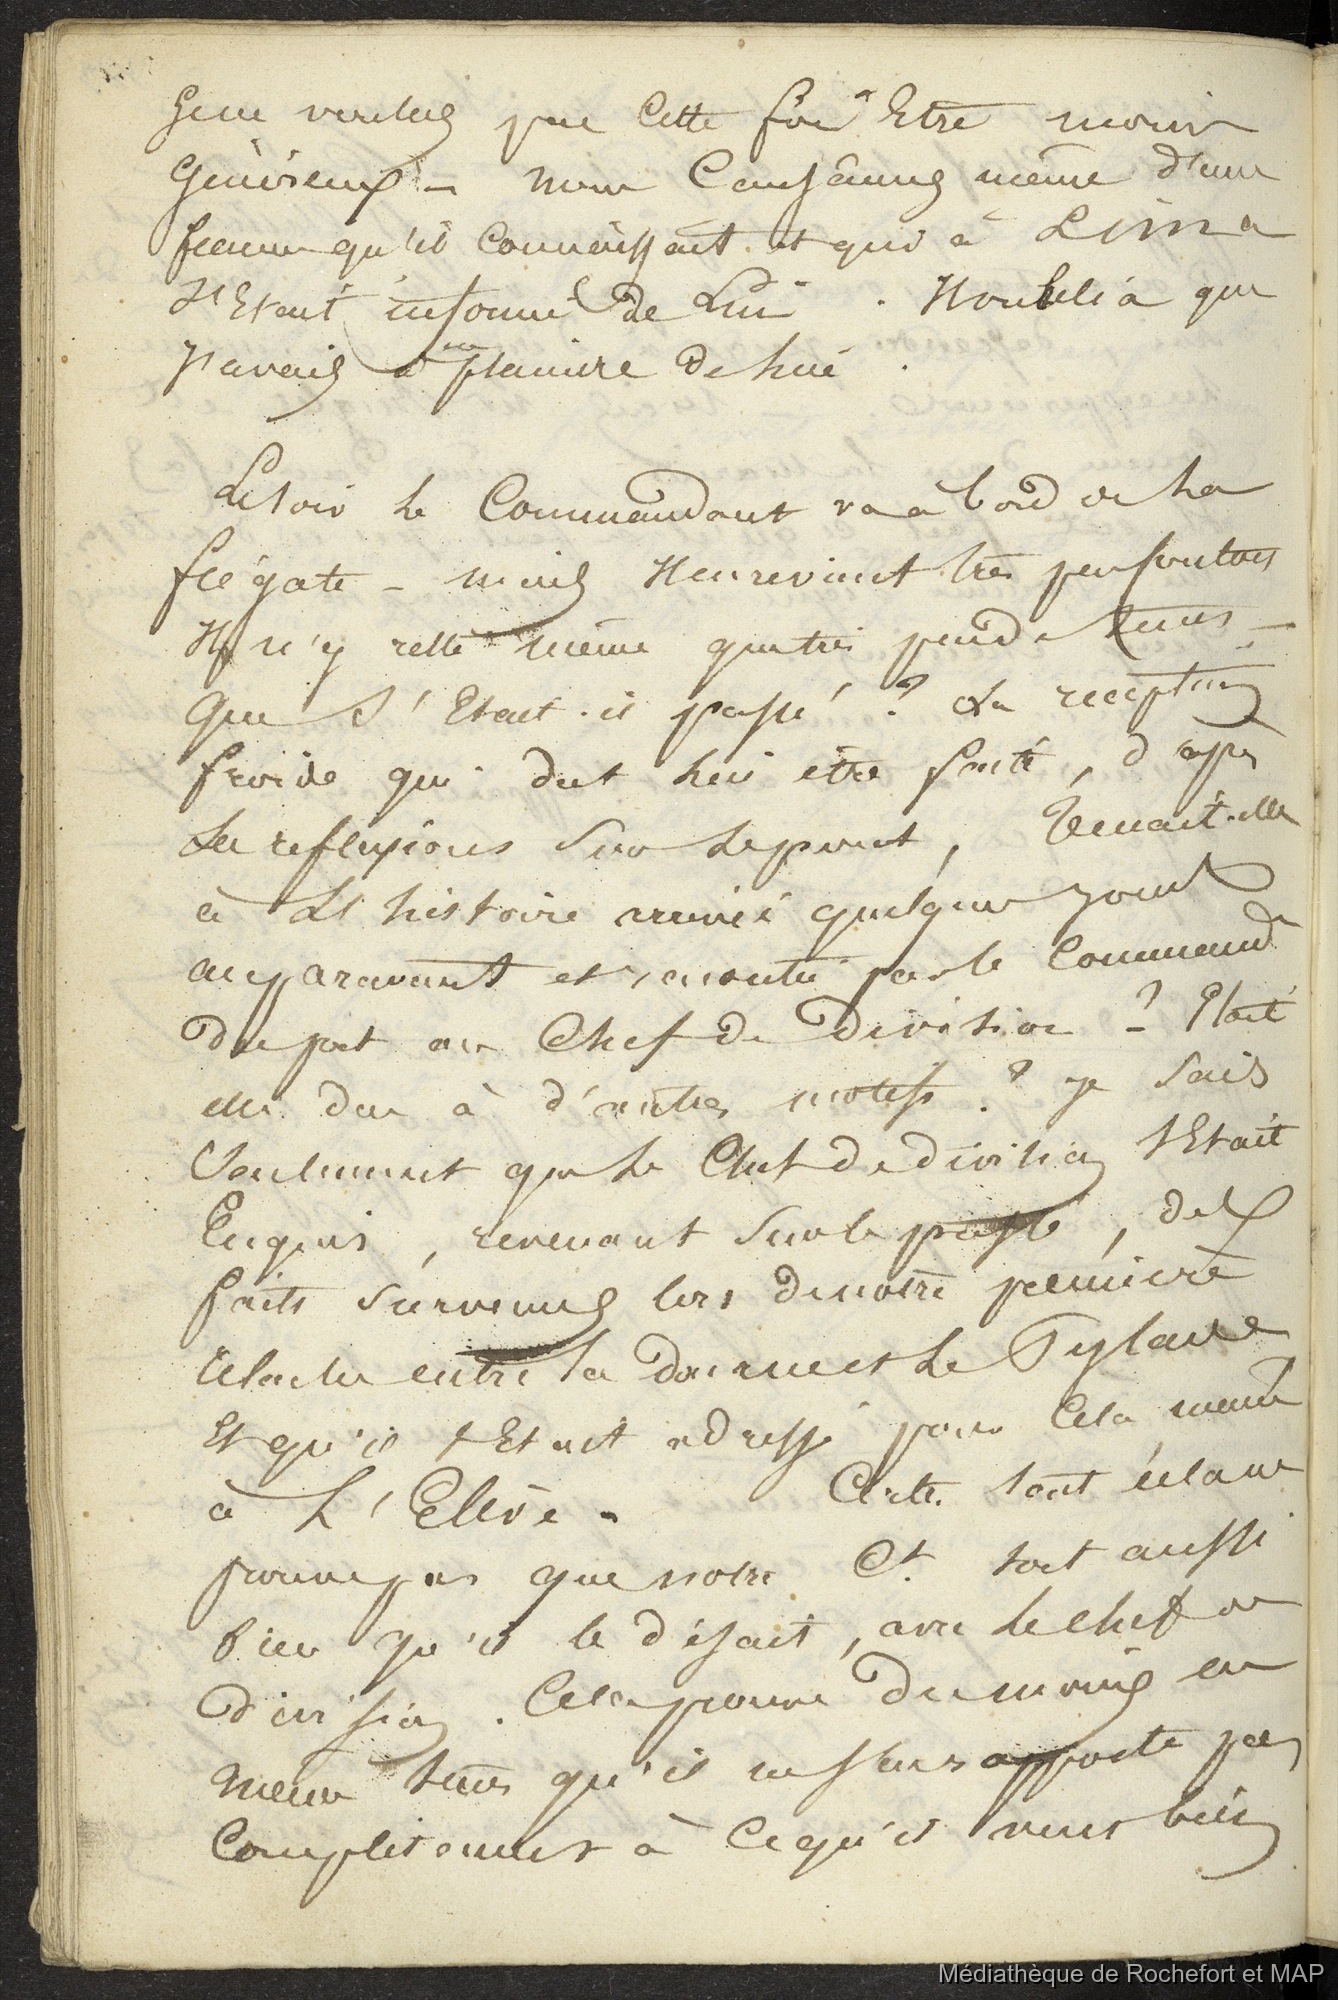 Je ne voulus pas cette fois être moins
généreux - nous causâmes même d'une
femme qu'il connaissait et qui à Lima
s'était informé de lui. Il oublia que
j'avais à me plaindre de lui.
Le soir le Commandant va à bord de la
frégate - mais il en revient très peu
Il n'y resta même que très peu de tems -
que s'était-il passé? La réception
froide qui dut lui être faite, d'après
les reflexions sur le pont, tenait-elle
à l'histoire arrivée quelques jours
auparavant et racontée par le Command
du port au Chef de division? - Etait
elle due à d'autres motifs? je sais
seulement que le Chef de division s'était
enquis, revenant sur le passé, des
faits survenus lors de notre première
relache entre la et le Pylade
et qu'il s'était adressé pour cela même
à L'Elève. Certes tout cela ne
prouve pas que notre Ct soit aussi
bien qu'il le disait, avec le chef de
division. Cela prouve du moins en
même tems qu'il ne s'en rapporte pas
complètement à ce qu'il veut bien
Médiathèque de Rochefort et MAP